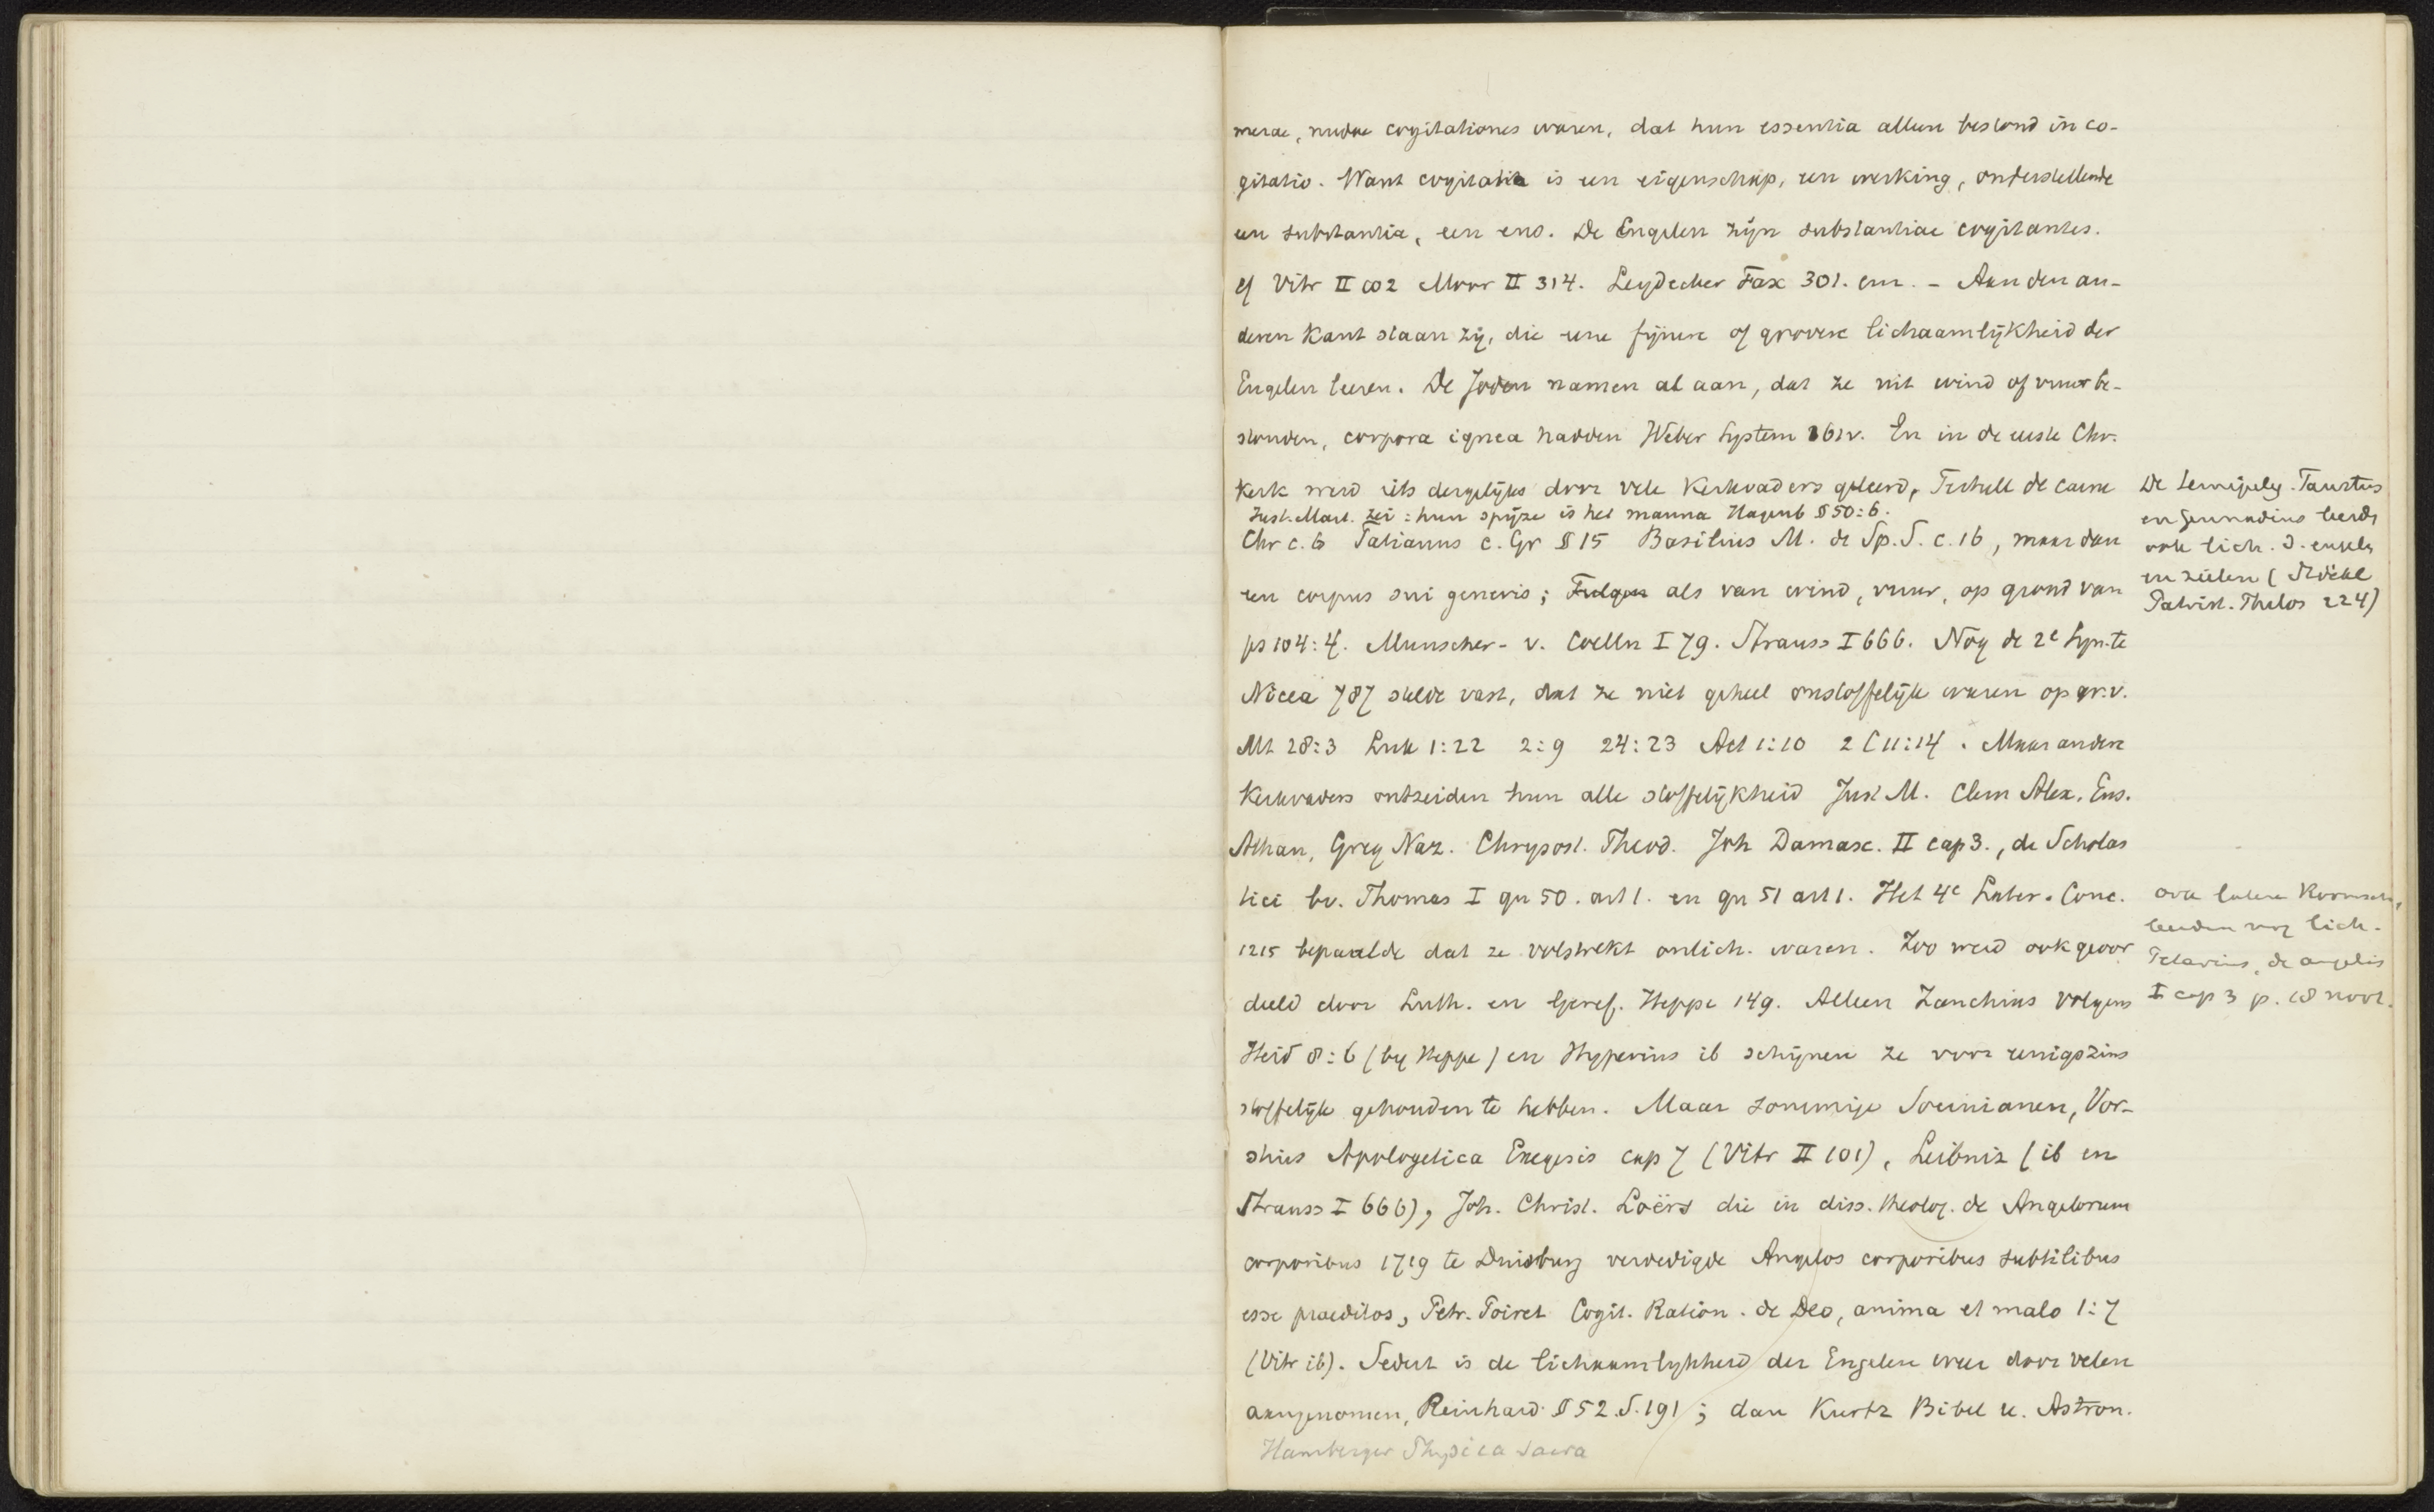 merae, nudae cogitationes waren, dat hun essentia alleen bestond in co-
gitatio. Want cogitatio is een eigenschap, een werking, onderstellende
een substantia, een ens. De Engelen zijn substantiae cogitantes.
cf Vitr II 102 Moor II 314. Leydecker Fax 301. enz. - Aan den an-
deren Kant staan zij, die eene fijnere of grovere lichaamlijkheid der
Engelen leeren. De Joden namen al aan, dat ze uit wind of vuur be-
stonden, corpora ignea hadden Weber System 161v. En in de eerste Chr.
Kerk werd iets dergelijks door vele Kerkvaders geleerd, Tertull de carne
Just. Mart. zei: hun spijze is het manna Hagenb § 50:6.
Chr c. 6 Tatianus c. Gr § 15 Basilius M. de Sp. S. c. 16, maar dan
een corpus sui generis; als van wind, vuur, op grond van
ps 104:4. Munscher- v. Coelln I 79. Strauss I 666. Nog de 2e Syn. te
Nicea 787 stelde vast, dat ze niet geheel onstoffelijk waren op gr. v.
Mt 28:3 Luk 1:22 2:9 24:23 Act 1:10 2 C 11:14. Maar andere
Kerkvaders ontzeiden hun alle stoffelijkheid Just M. Clem Alex. Eus.
Athan, Greg Naz. Chrysost. Theod. Joh Damasc. II cap 3., de Scholas
tici bv. Thomas I qu 50. art 1. en qu 51 art 1. Het 4e Later. Conc.
1215 bepaalde dat ze volstrekt onlich. waren. Zoo werd ook geoor
deeld door Luth. en Geref. Heppe 149. Alleen Zanchius volgens
Heid 8:6 (bij Heppe) en Hyperius ib schijnen ze voor eenigszins
stoffelijk gehouden te hebben. Maar sommige Socinianen, Vor-
stius Apologetica Exegesis cap 7 (Vitr II 101), Leibniz (ib en
Strauss I 666), Joh. Christ. Loërs die in diss. theolog. de Angelorum
corporibus 1719 te Duisburg verdedigde Angelos corporibus subtilibus
esse praeditos, Petr. Poiret Cogit. Ration. de Deo, anima et malo 1:7
(Vitr ib). Sedert is de lichaamlykheid der Engelen weer door velen
aangenomen, Reinhard § 52. S. 191; dan Kurtz Bibel u. Astron.
Hamberger Physica sacra
De Semipelag. Faustus
en Gennadius leerde
ook lich. d. engelen
en zielen (Stöckl
Patrist. Philos 224)
ook latere Roomsch,
leerden nog lich.
Petavius, de angelis
I cap 3 p. 18 noot.